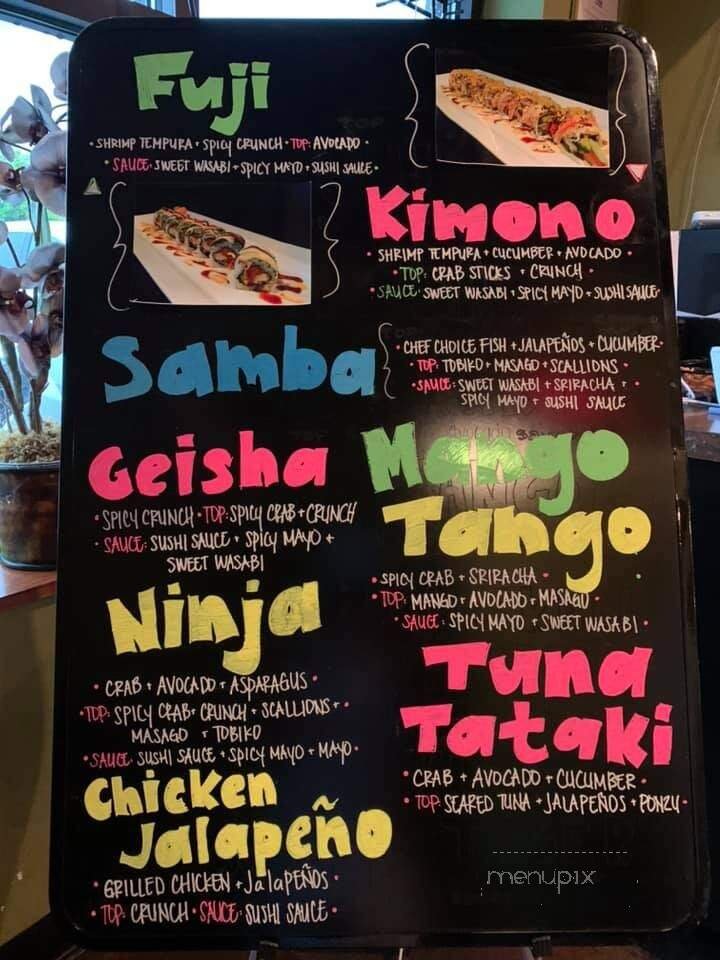 Fuji
• SHRIMP TEMPURA • SPICY CRUNCH • TOP: AVOCADO •
• SAUCE: SWEET WASABI + SPICY MAYO + SUSHI SAUCE •
Kimono
• SHRIMP TEMPURA + CUCUMBER + AVOCADO •
• TOP: CRAB STICKS + CRUNCH •
• SAUCE: SWEET WASABI + SPICY MAYO + SUSHI SAUCE •
Samba
• CHEF CHOICE FISH + JALAPEÑOS + CUCUMBER •
• TOP: TOBIKO + MASAGO + SCALLIONS •
• SAUCE: SWEET WASABI + SRIRACHA + •
SPICY MAYO + SUSHI SAUCE
Geisha
• SPICY CRUNCH • TOP: SPICY CRAB + CRUNCH
• SAUCE: SUSHI SAUCE + SPICY MAYO +
SWEET WASABI
Mango
Tango
• SPICY CRAB + SRIRACHA •
• TOP: MANGO + AVOCADO + MASAGO •
• SAUCE: SPICY MAYO + SWEET WASABI •
Ninja
• CRAB + AVOCADO + ASPARAGUS •
• TOP: SPICY CRAB + CRUNCH + SCALLIONS + •
MASAGO + TOBIKO
• SAUCE: SUSHI SAUCE + SPICY MAYO + MAYO •
Tuna
Tataki
• CRAB + AVOCADO + CUCUMBER •
• TOP: SEARED TUNA + JALAPEÑOS + PONZU •
Chicken
Jalapeño
• GRILLED CHICKEN + JalaPEÑOS •
• TOP: CRUNCH • SAUCE: SUSHI SAUCE •
menupix